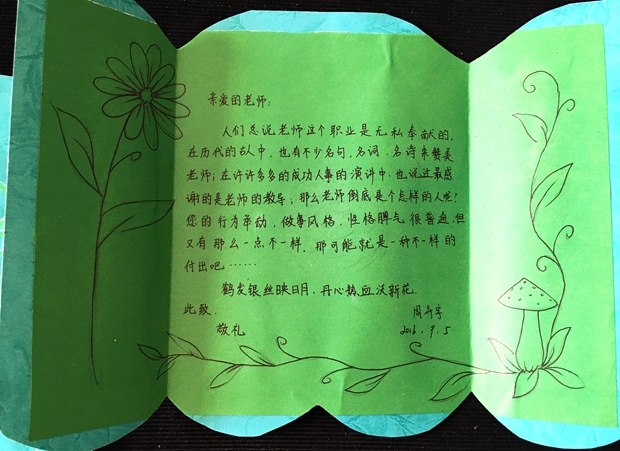 亲爱的老师：
人们总说老师这个职业是无私奉献的，
在历代的古人中，也有不少名句，名词，名诗来赞美
老师；在许许多多的成功人事的演讲中，也说过最感
谢的是老师的教导；那么老师倒底是个怎样的人呢？
您的行为举动，做事风格，性格脾气很普通，但
又有那么一点不一样，那可能就是一种不一样的
付出吧……
鹤发银丝映日月，丹心热血沃新花。
此致，
敬礼
周卉宇
2016.9.5